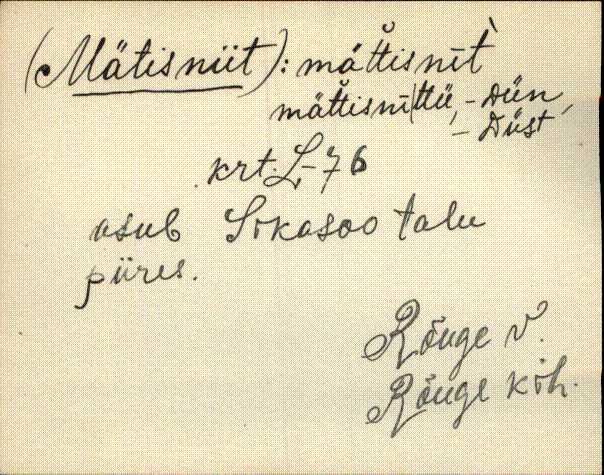 (Mätisniit): mät̆tisnīt̀
mät̆tisnīttü, -Dün,
- Düst
krt. L-76
asub Sokasoo talu
piires.
Rõuge v.
Rõuge kih.